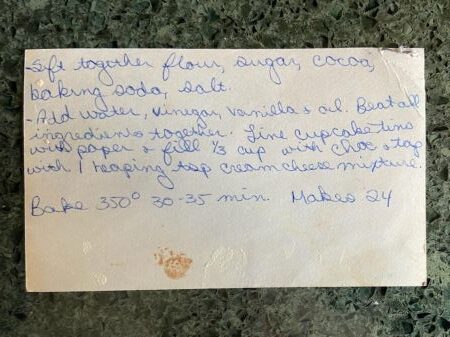 -Sift together flour, sugar, cocoa,
baking soda, salt.
-Add water, vinegar, vanilla & oil. Beat all
ingredients together. Line cupcake tins
with paper & fill 1/3 cup with choc & top
with 1 heaping tsp cream cheese mixture.
Bake 350° 30-35 min. Makes 24